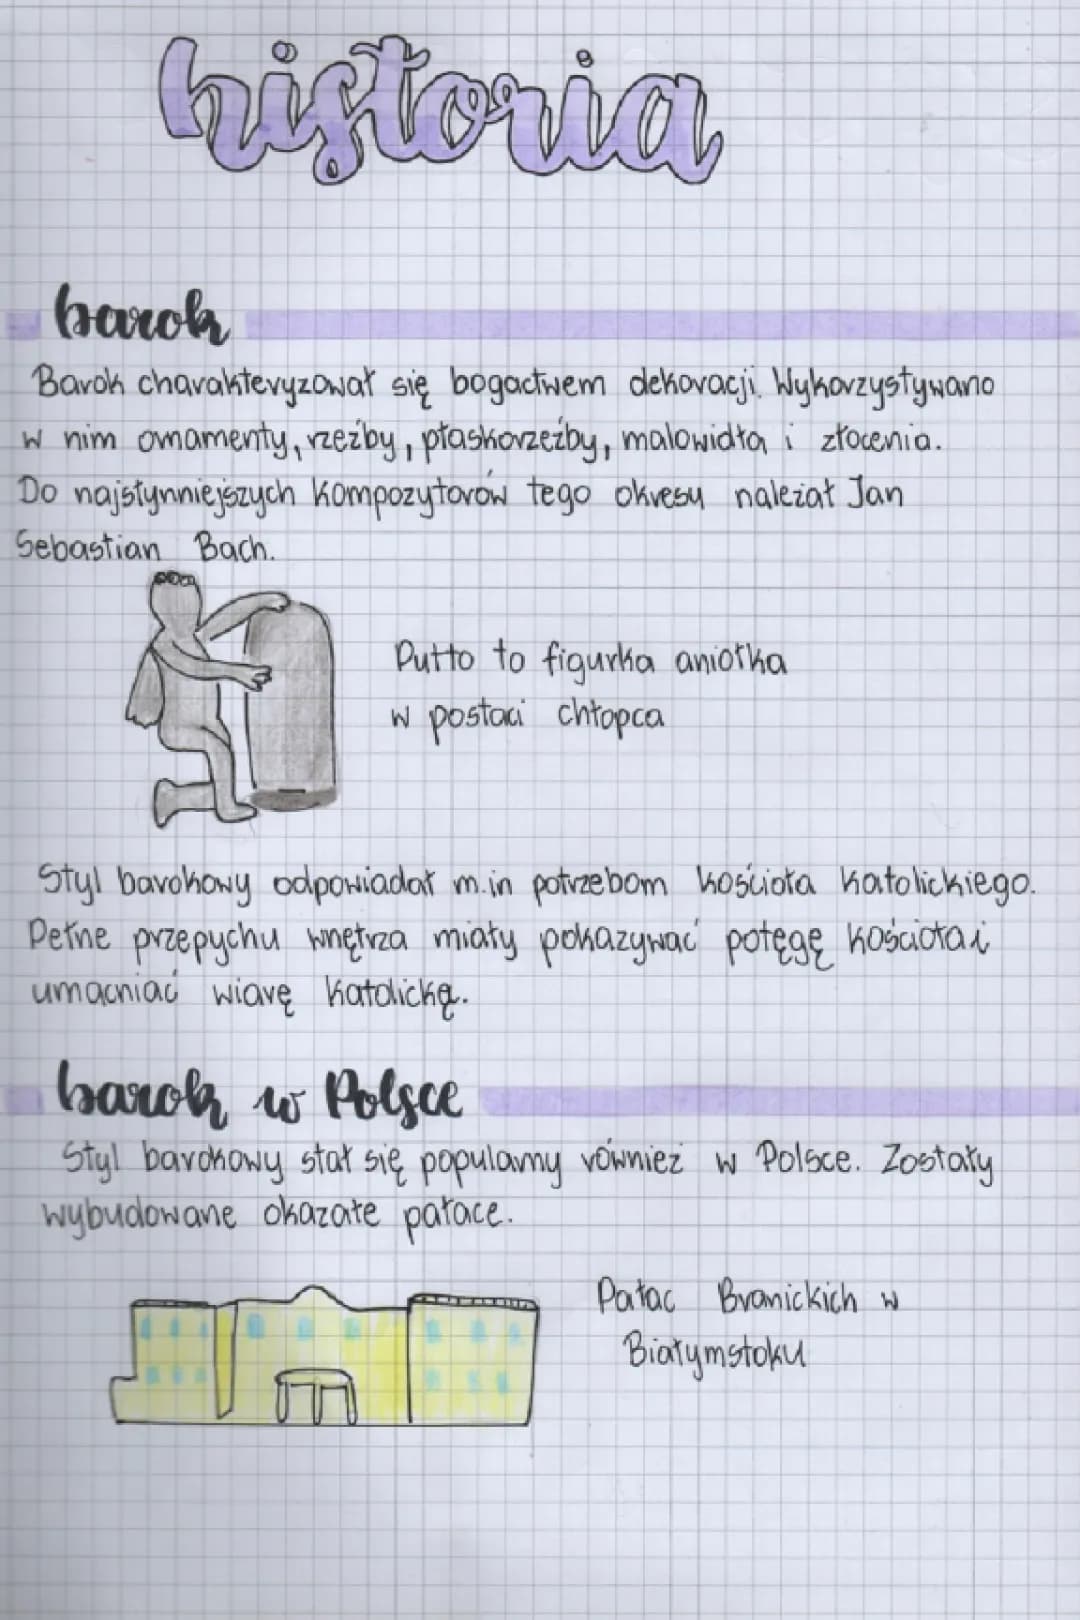 historia
barok
Barok charakteryzował się bogactwem dekoracji. Wykorzystywano
w nim ornamenty, rzeźby, płaskorzeźby, malowidła i złocenia.
Do najsłynniejszych kompozytorów tego okresu należał Jan
Sebastian Bach.
Putto to figurka aniołka
w postaci chłopca
Styl barokowy odpowiadał m.in potrzebom kościoła katolickiego.
Pełne przepychu wnętrza miały pokazywać potęgę kościoła i
umacniać wiarę katolicką.
barok w Polsce
Styl barokowy stał się popularny również w Polsce. Zostały
wybudowane okazałe pałace.
Pałac Branickich w
Białymstoku